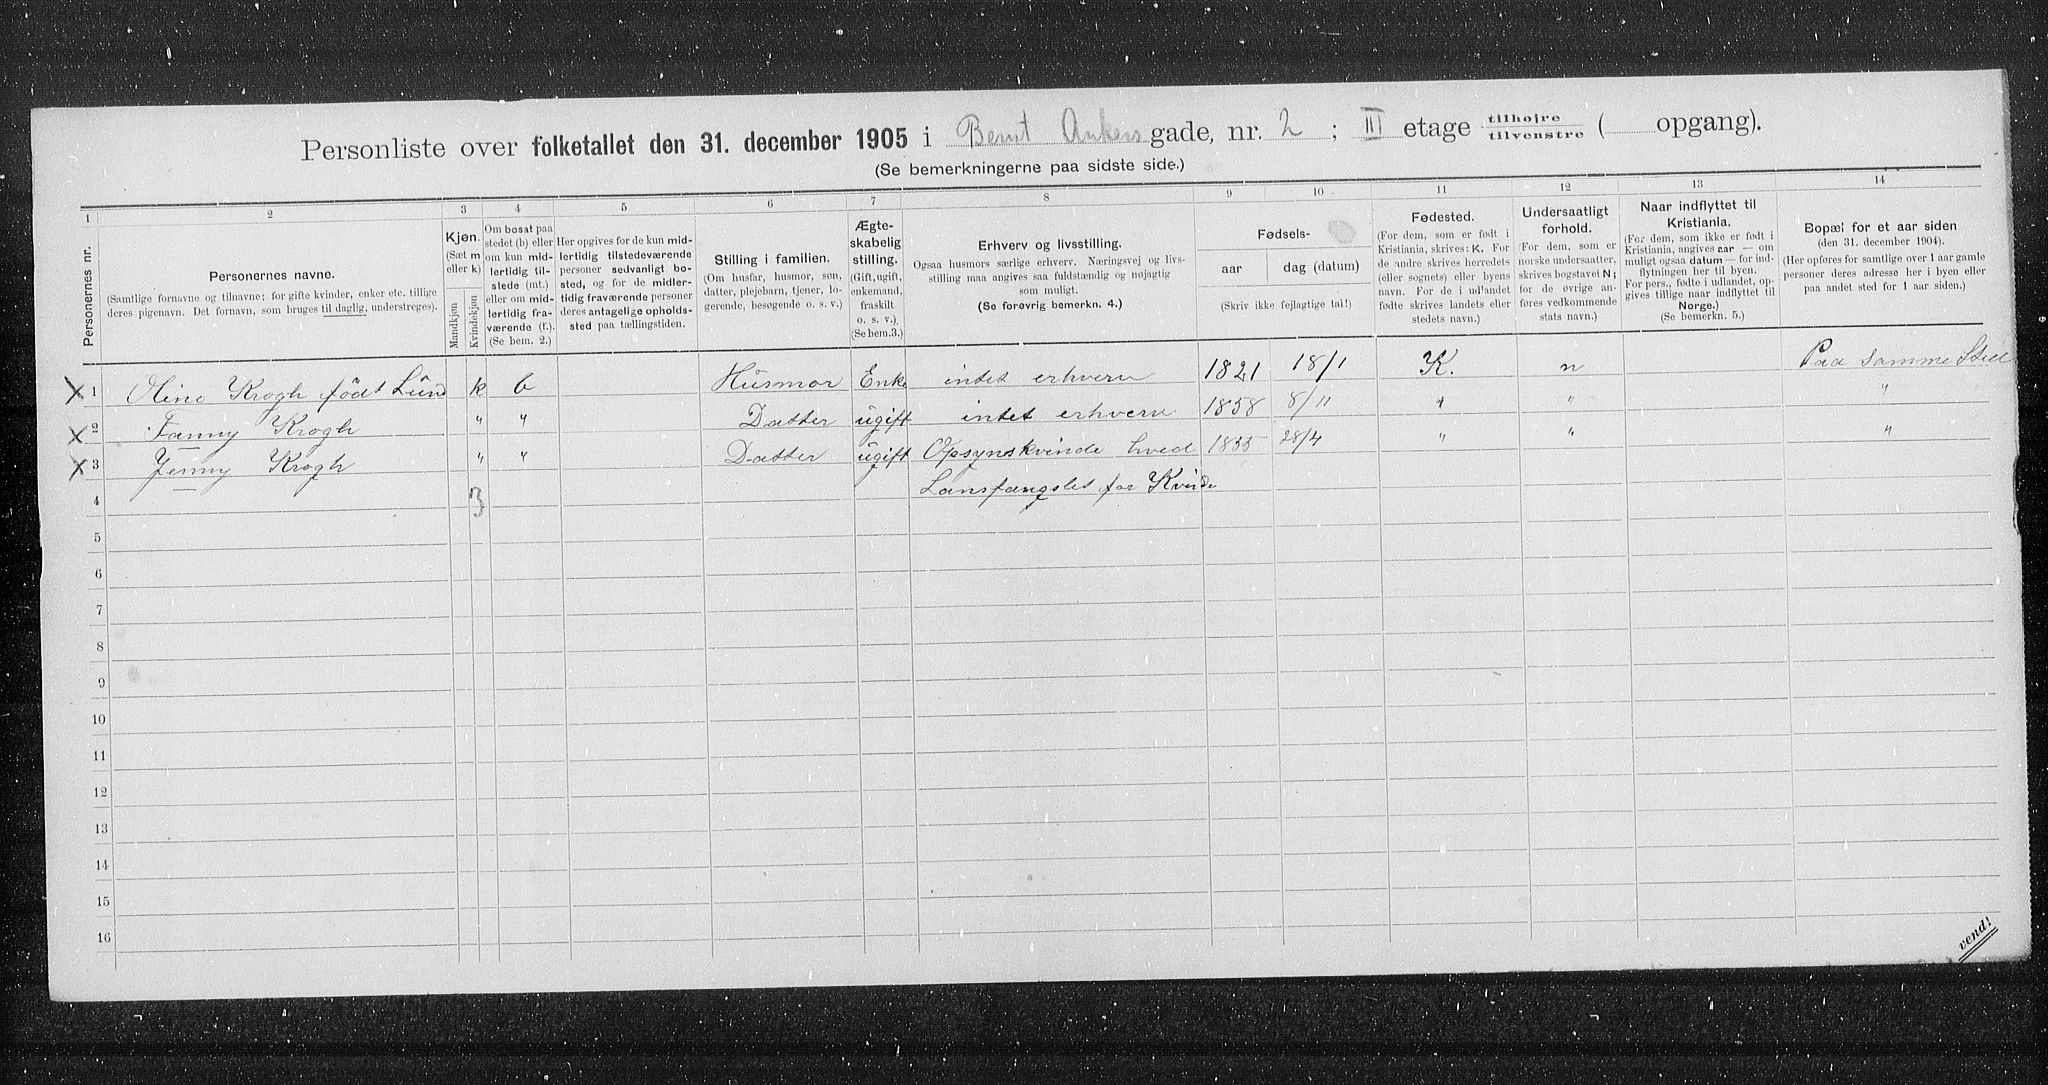 Personliste over folketallet den 31. december 1905 i Bernt Ankers gade, nr. 2 ; III etage tilhøjre / tilvenstre ( opgang).
(Se bemerkningerne paa sidste side.)
1 2 3 4 5 6 7 8 9 10 11 12 13 14
Personernes nr.
Personernes navne.
(Samtlige fornavne og tilnavne; for gifte kvinder, enker etc. tillige
deres pigenavn. Det fornavn, som bruges til daglig, understreges).
Kjøn.
(Sæt m
eller k)
Mandkjøn
Kvindekjøn
Om bosat paa
stedet (b) eller
om kun mid-
lertidig til-
stede (mt.)
eller om mid-
lertidig fra-
værende (f.).
(Se bem. 2.)
Her opgives for de kun mid-
lertidig tilstedeværende
personer sedvanligt bo-
sted, og for de midler-
tidig fraværende personer
deres antagelige opholds-
sted paa tællingstiden.
Stilling i familien.
(Om husfar, husmor, søn,
datter, plejebarn, tjener, lo-
gerende, besøgende o. s. v.)
Ægte-
skabelig
stilling.
(Gift, ugift,
enkemand,
fraskilt
o. s. v.).
(Se bem.3.)
Erhverv og livsstilling.
Ogsaa husmors særlige erhverv. Næringsvej og livs-
stilling maa angives saa fuldstændig og nøjagtig
som muligt.
(Se forøvrig bemerkn. 4.)
Fødsels-
aar
dag (datum)
(Skriv ikke fejlagtige tal!)
Fødested.
(For dem, som er født i
Kristiania, skrives: K. For
de andre skrives herredets
(eller sognets) eller byens
navn. For de i udlandet
fødte skrives landets eller
stedets navn.)
Undersaatligt
forhold.
(For dem, som er
norske undersaatter,
skrives bogstavet N;
for de øvrige an-
føres vedkommende
stats navn.)
Naar indflyttet til
Kristiania.
(For dem, som ikke er født i
Kristiania, angives aar — om
muligt ogsaa datum — for ind-
flytningen her til byen.
For pers., fødte i udlandet, op-
gives tillige naar indflyttet til
Norge.)
(Se bemerkn. 5.)
Bopæl for et aar siden
(den 31. december 1904).
(Her opføres for samtlige over 1 aar gamle
personer deres adresse her i byen eller
paa andet sted for 1 aar siden.)
X 1 Oline Krogh født Lund k b Husmor Enke intet erhverv 1821 18/1 K. n Paa samme Sted
X 2 Fanny Krogh " " Datter ugift intet erhverv 1858 8/11 " " "
X 3 Jenny Krogh " " Datter ugift Opsynskvinde hved 1855 28/4 " " "
4 3 Lansfangslet for Kvinde
5
6
7
8
9
10
11
12
13
14
15
16
vend!